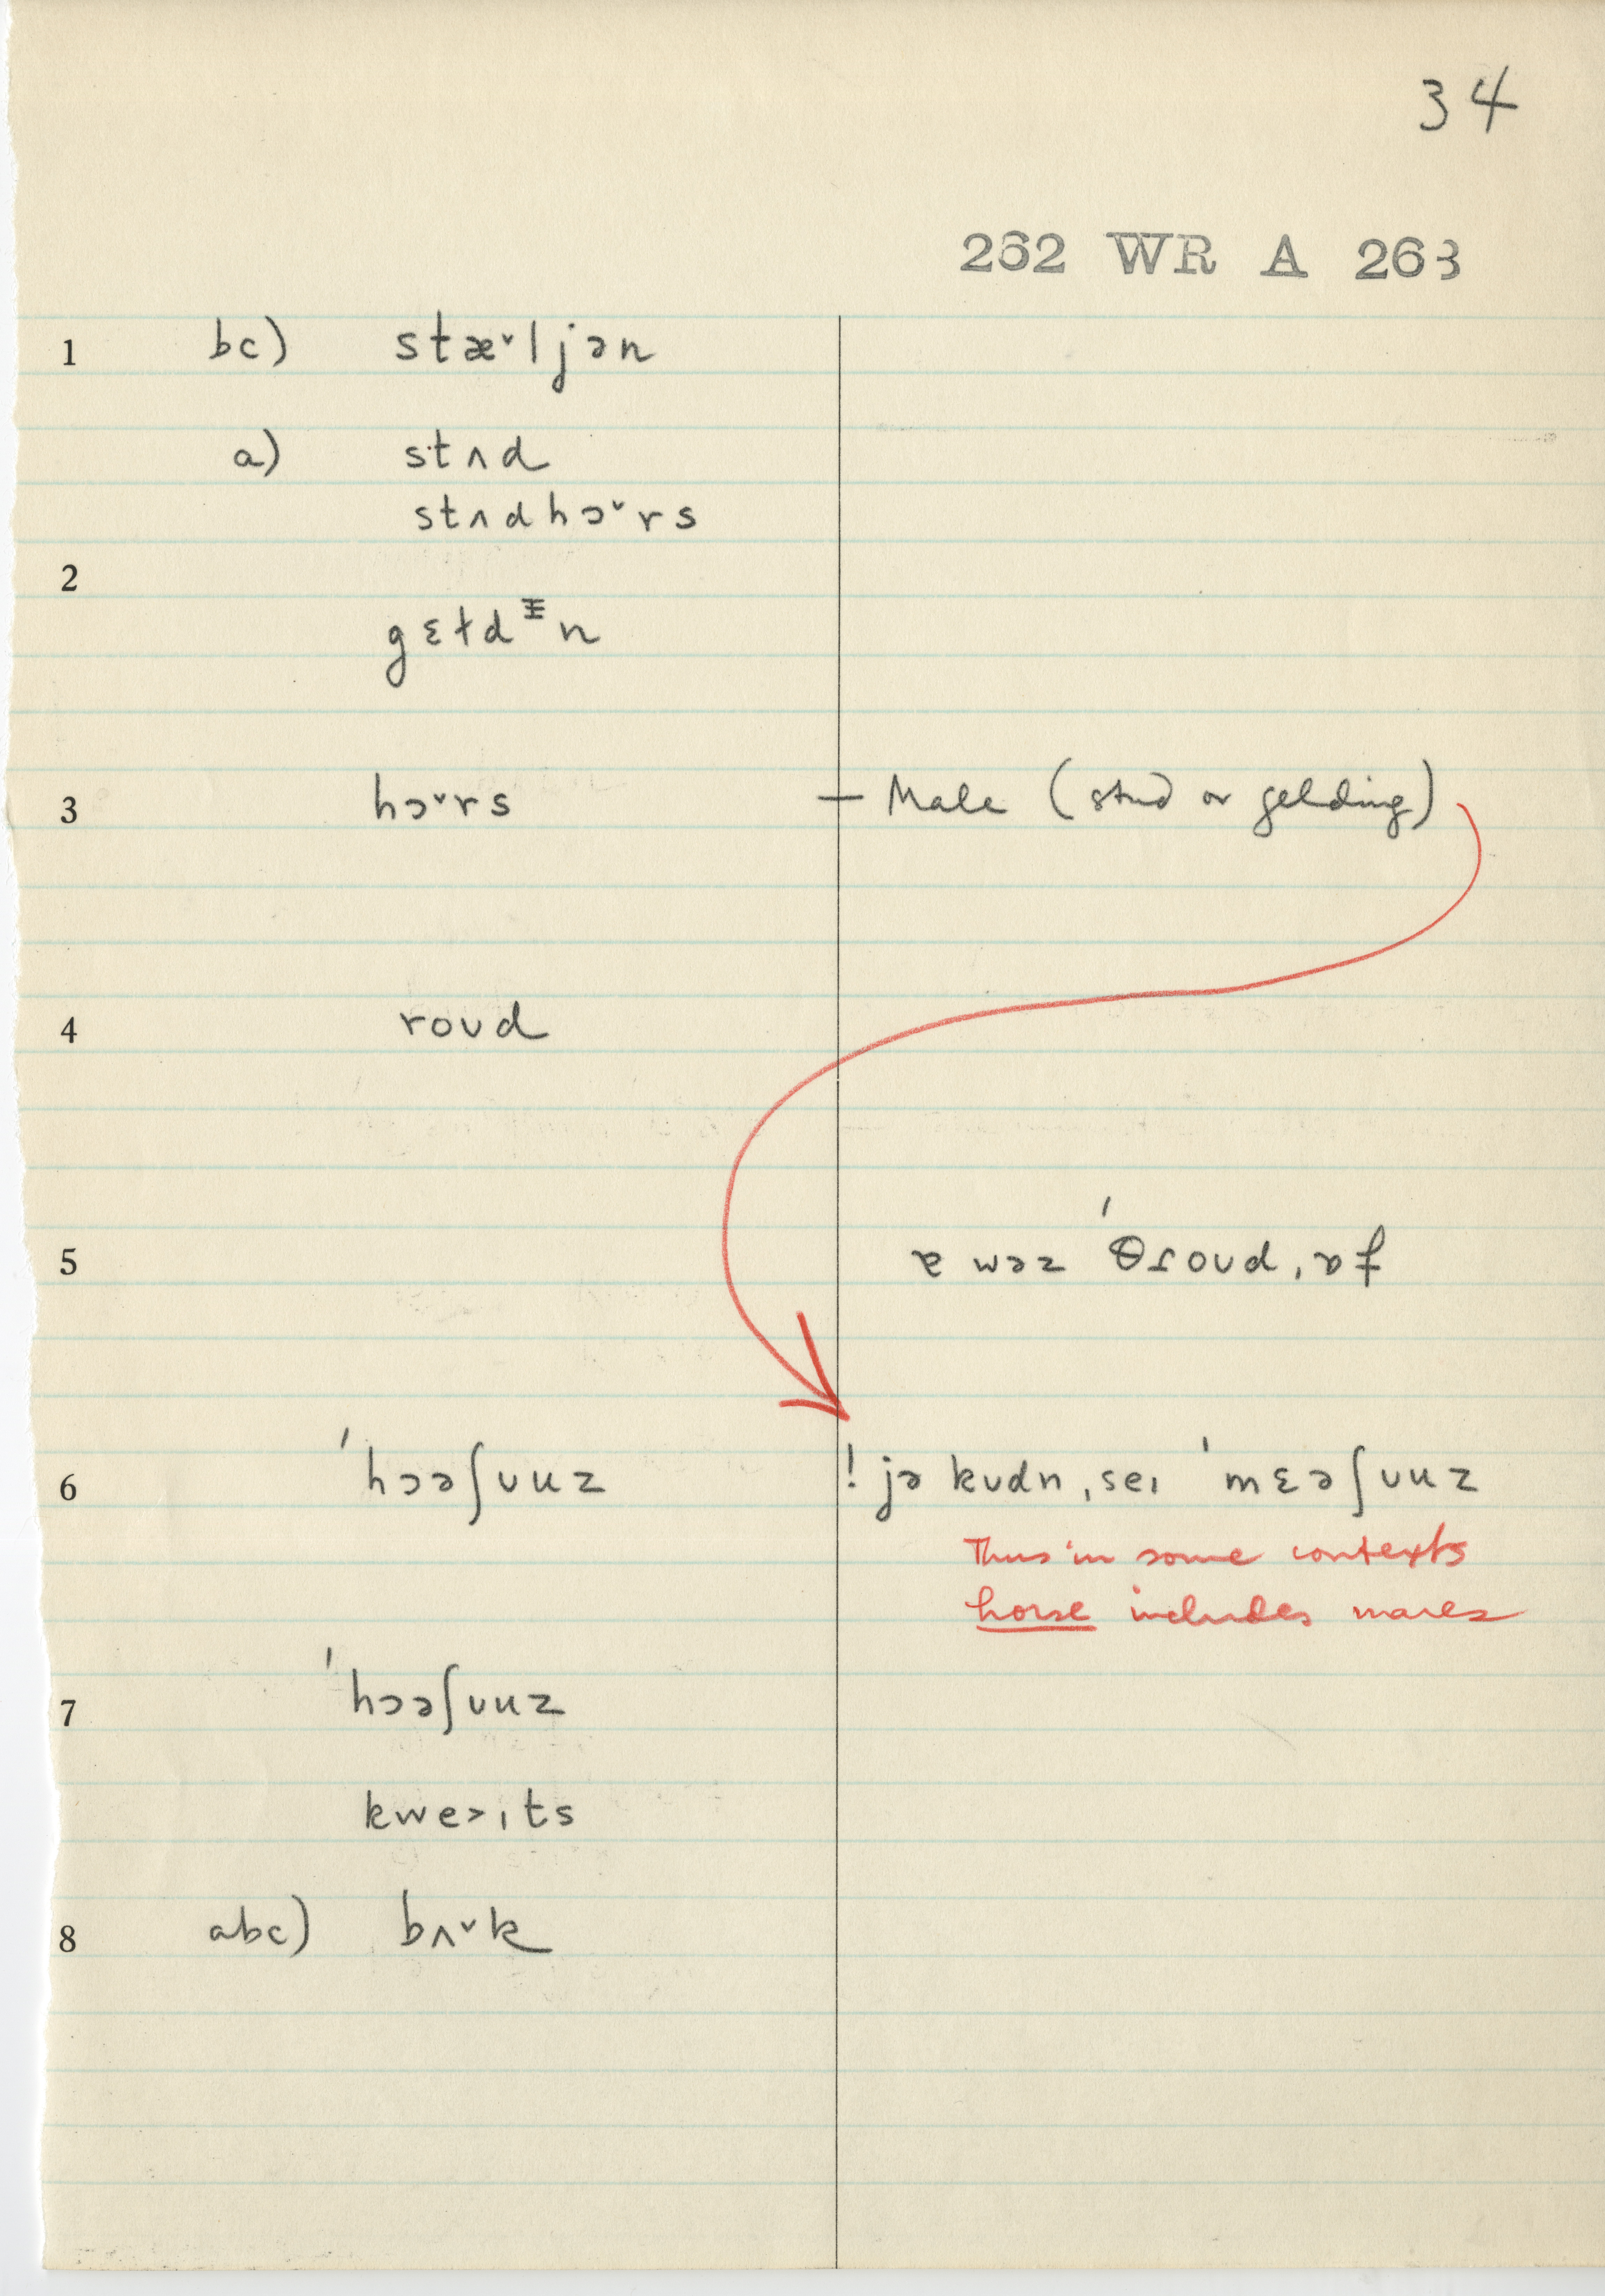 34
262 WR A 263
1 bc) stæ˅ljən
a) stʌd
stʌdhɔ˅rs
2
gɛɫdᵻn
3 hɔ˅rs — Male (stud or gelding)
4 roʊd
5 ɐ wəz ˈθɾoʊd ˌɒf
6 ˈhɔəʃʊuz ! jə kʊdn ˌseɪ ˈmɛəʃʊuz
Thus in some contexts
horse includes mares
7 ˈhɔəʃʊuz
kwe˃ɪts
8 abc) bʌ˅k